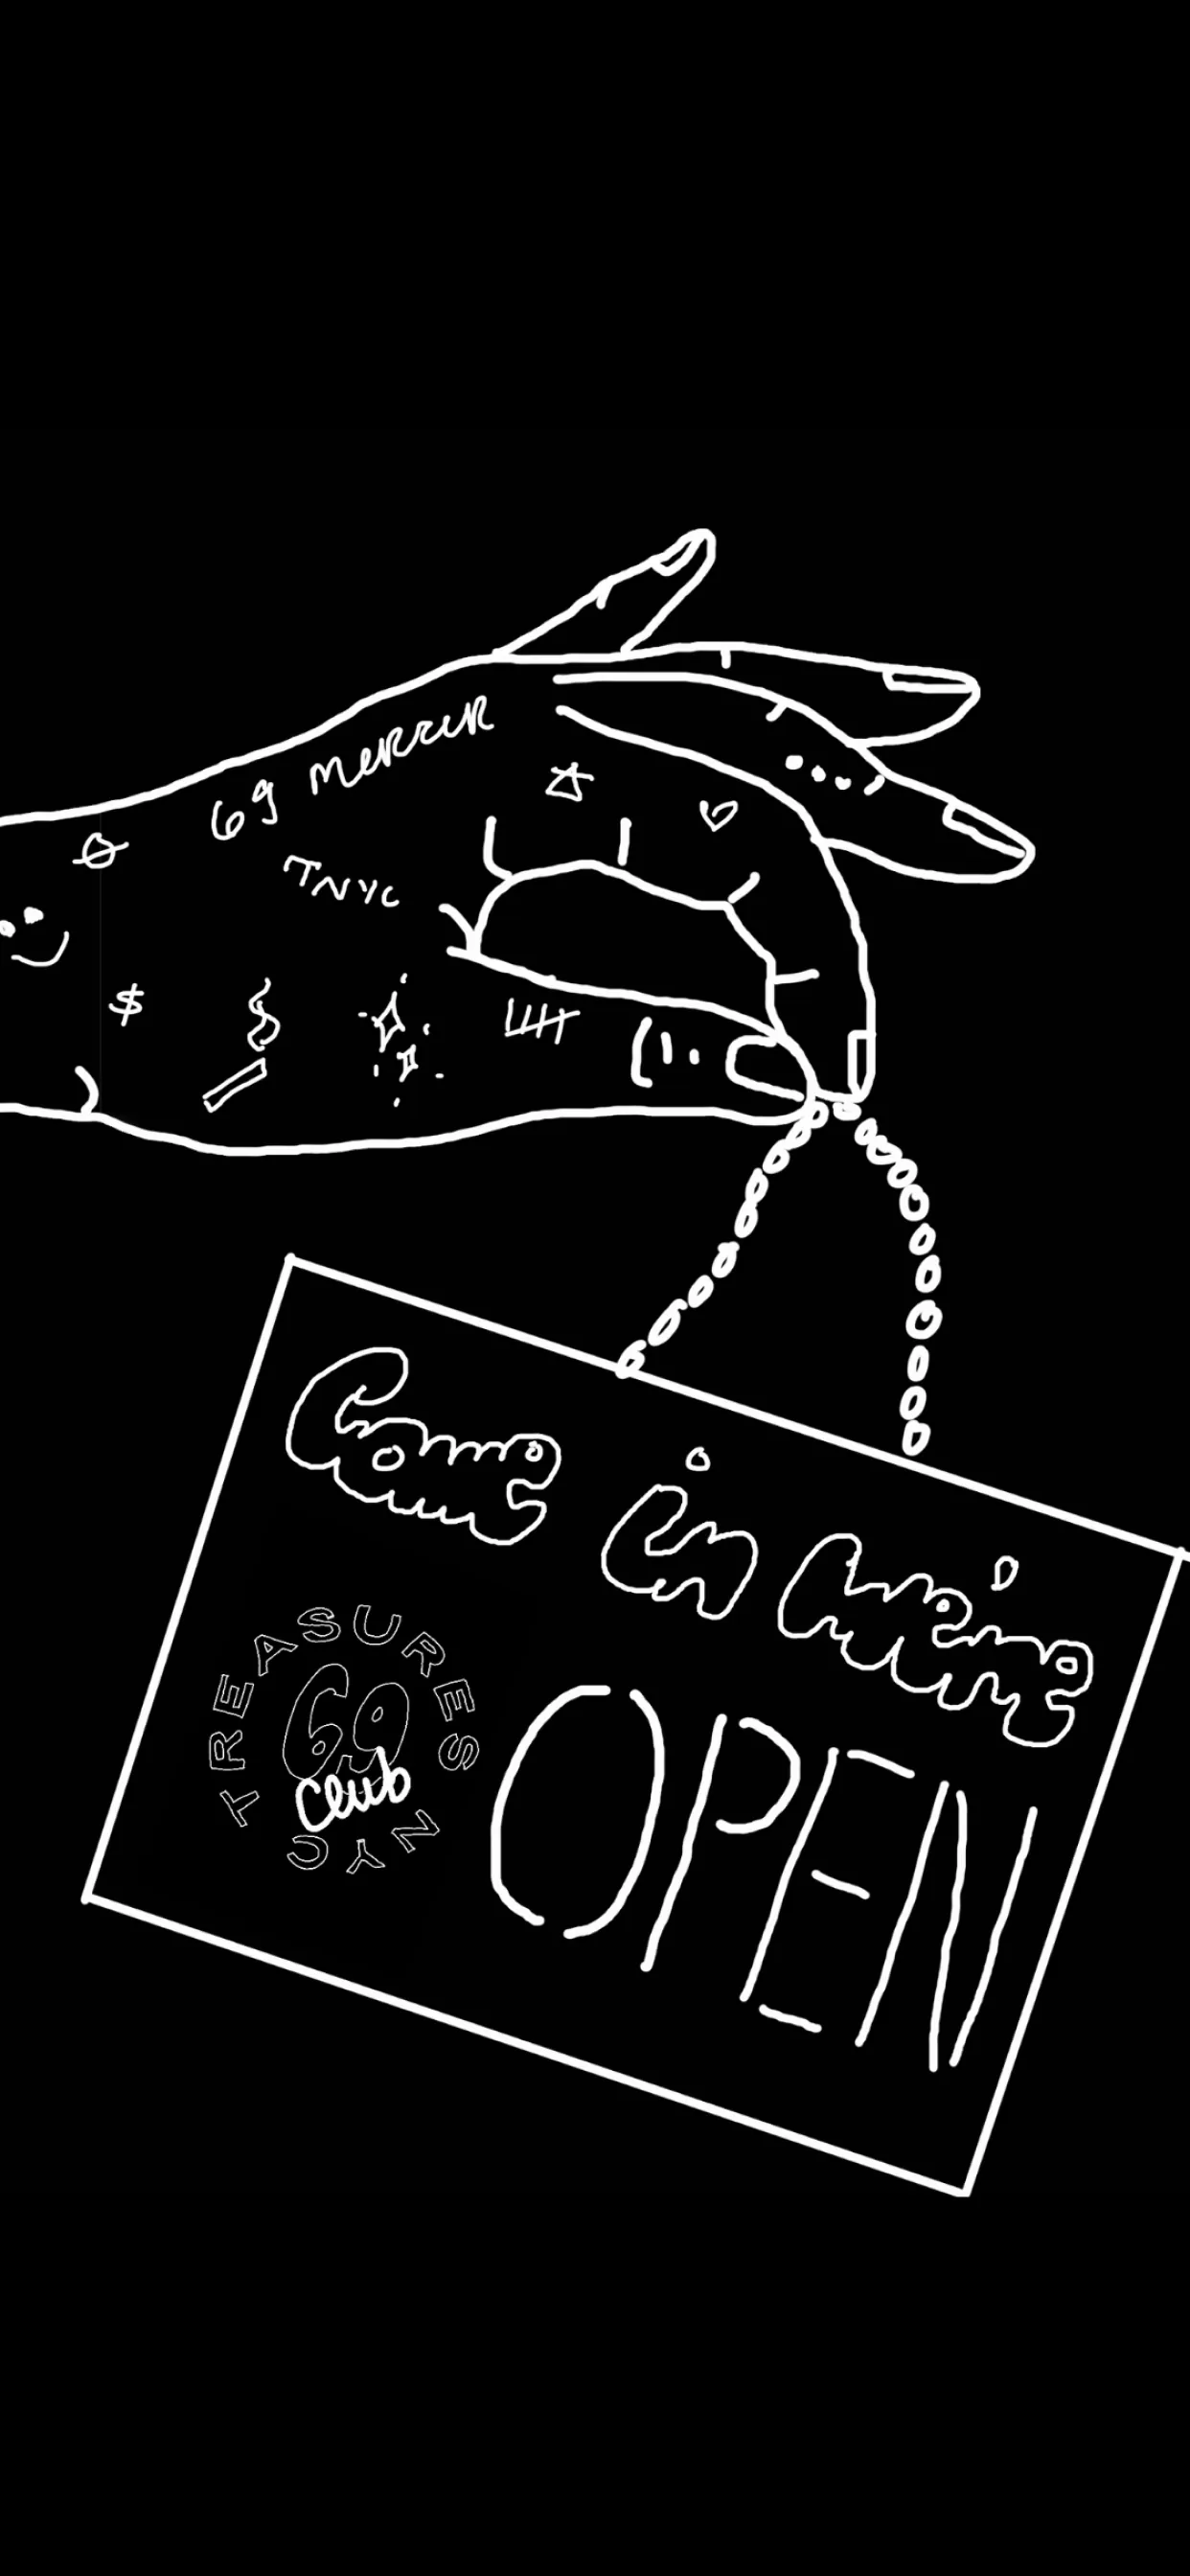 69 MERCER
TNYC
$
Come in We're
OPEN
TREASURES
69
Club
NYC